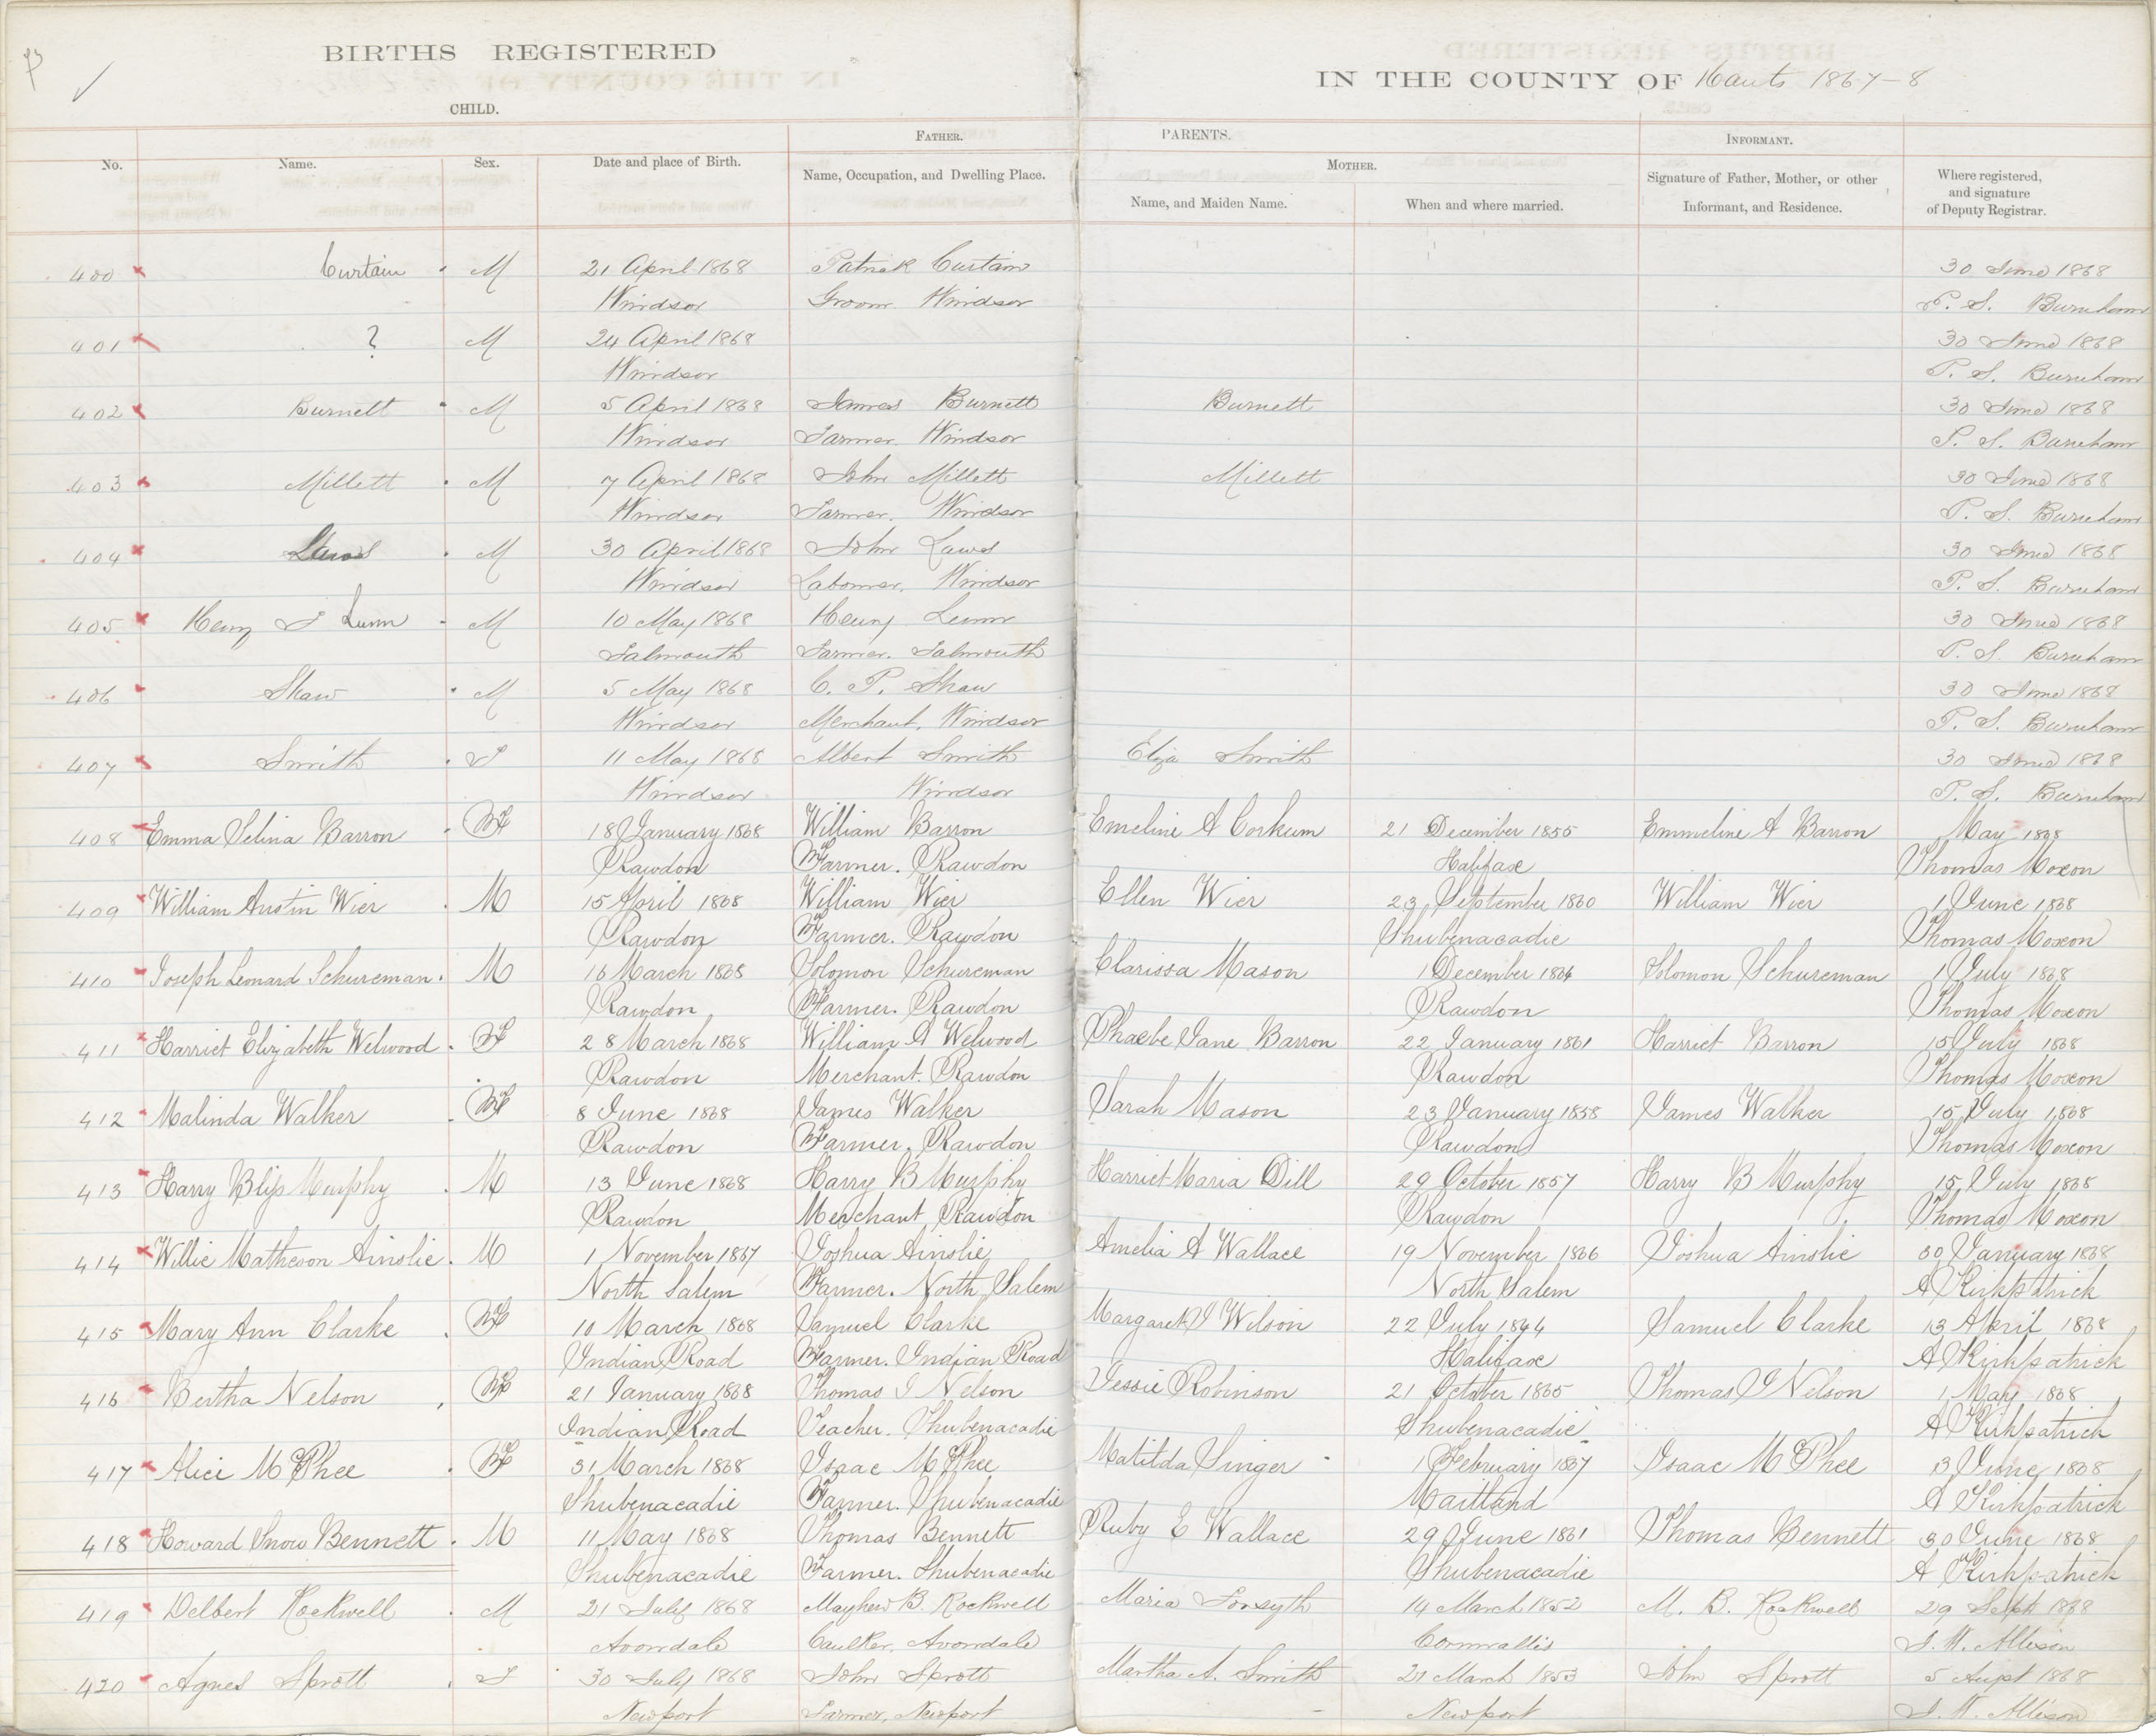 BIRTHS REGISTERED
IN THE COUNTY OF Hants 1867-8
CHILD.
PARENTS.
FATHER.
MOTHER.
INFORMANT.
No.
Name.
Sex.
Date and place of Birth.
Name, Occupation, and Dwelling Place.
Name, and Maiden Name.
When and where married.
Signature of Father, Mother, or other Informant, and Residence.
Where registered, and signature of Deputy Registrar.
400 Curtain M 21 April 1868 Patrick Curtain 30 June 1868
Windsor Groom Windsor P. S. Burnham
401 ? M 24 April 1868 30 June 1868
Windsor P. S. Burnham
402 Burnett M 5 April 1868 James Burnett Burnett 30 June 1868
Windsor Farmer. Windsor P. S. Burnham
403 Millett M 7 April 1868 John Millett Millett 30 June 1868
Windsor Farmer. Windsor P. S. Burnham
404 Laws M 30 April 1868 John Laws 30 June 1868
Windsor Labourer. Windsor P. S. Burnham
405 Henry F Lunn M 10 May 1868 Henry Lunn 30 June 1868
Falmouth Farmer. Falmouth P. S. Burnham
406 Shaw M 5 May 1868 C. P. Shaw 30 June 1868
Windsor Merchant. Windsor P. S. Burnham
407 Smith F 11 May 1868 Albert Smith Eliza Smith 30 June 1868
Windsor Windsor P. S. Burnham
408 Emma Selina Barron F 18 January 1868 William Barron Emeline A Corkum 21 December 1855 Emmeline A Barron May 1868
Rawdon Farmer. Rawdon Halifax Thomas Moxon
409 William Austin Wier M 15 April 1868 William Wier Ellen Wier 23 September 1860 William Wier 1 June 1868
Rawdon Farmer. Rawdon Shubenacadie Thomas Moxon
410 Joseph Leonard Schureman. M 16 March 1868 Solomon Schureman Clarissa Mason 1 December 1864 Solomon Schureman 1 July 1868
Rawdon Farmer. Rawdon Rawdon Thomas Moxon
411 Harriet Elizabeth Welwood F 28 March 1868 William A Welwood Phaebe Jane Barron 22 January 1861 Harriet Barron 15 July 1868
Rawdon Merchant. Rawdon Rawdon Thomas Moxon
412 Malinda Walker F 8 June 1868 James Walker Sarah Mason 23 January 1858 James Walker 15 July 1868
Rawdon Farmer. Rawdon Rawdon Thomas Moxon
413 Harry Blip Murphy M 13 June 1868 Harry B Murphy Harriet Maria Dill 29 October 1857 Harry B Murphy 15 July 1868
Rawdon Merchant Rawdon Rawdon Thomas Moxon
414 Willie Matheson Ainslie. M 1 November 1867 Joshua Ainslie Amelia A Wallace 19 November 1866 Joshua Ainslie 30 January 1868
North Salem Farmer. North Salem North Salem A Kirkpatrick
415 Mary Ann Clarke F 10 March 1868 Samuel Clarke Margaret J Wilson 22 July 1864 Samuel Clarke 13 April 1868
Indian Road Farmer. Indian Road Halifax A Kirkpatrick
416 Bertha Nelson F 21 January 1868 Thomas J Nelson Jessie Robinson 21 October 1865 Thomas J Nelson 1 May 1868
Indian Road Teacher. Shubenacadie Shubenacadie A Kirkpatrick
417 Alice McPhee F 31 March 1868 Isaac McPhee Matilda Singer 1 February 1867 Isaac McPhee 13 June 1868
Shubenacadie Farmer. Shubenacadie Maitland A Kirkpatrick
418 Howard Snow Bennett. M 11 May 1868 Thomas Bennett Ruby E Wallace 29 June 1861 Thomas Bennett 30 June 1868
Shubenacadie Farmer. Shubenacadie Shubenacadie A Kirkpatrick
419 Delbert Rockwell M 21 July 1868 Mayhew B. Rockwell Maria Forsyth 14 March 1852 M. B. Rockwell 29 Sept 1868
Avondale Caulker, Avondale Cornwallis J. W. Allison
420 Agnes Sprott F 30 July 1868 John Sprott Martha A. Smith 21 March 1853 John Sprott 5 Augt 1868
Newport Farmer, Newport Newport J. W. Allison